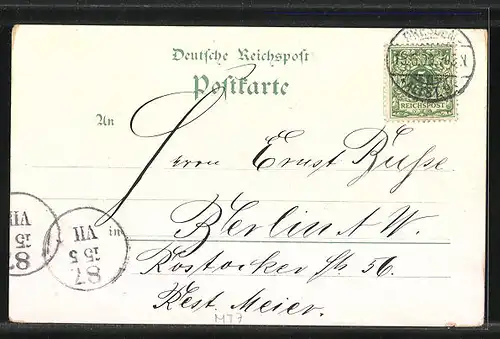 DRESDEN
Deutsche Reichspost
Postkarte
REICHSPOST
An
Herrn Ernst Buße
in Berlin N. W.
Rostocker Str. 56.
Rest. Meier.
VII
15 5
87
VII
15 5
87
MT7